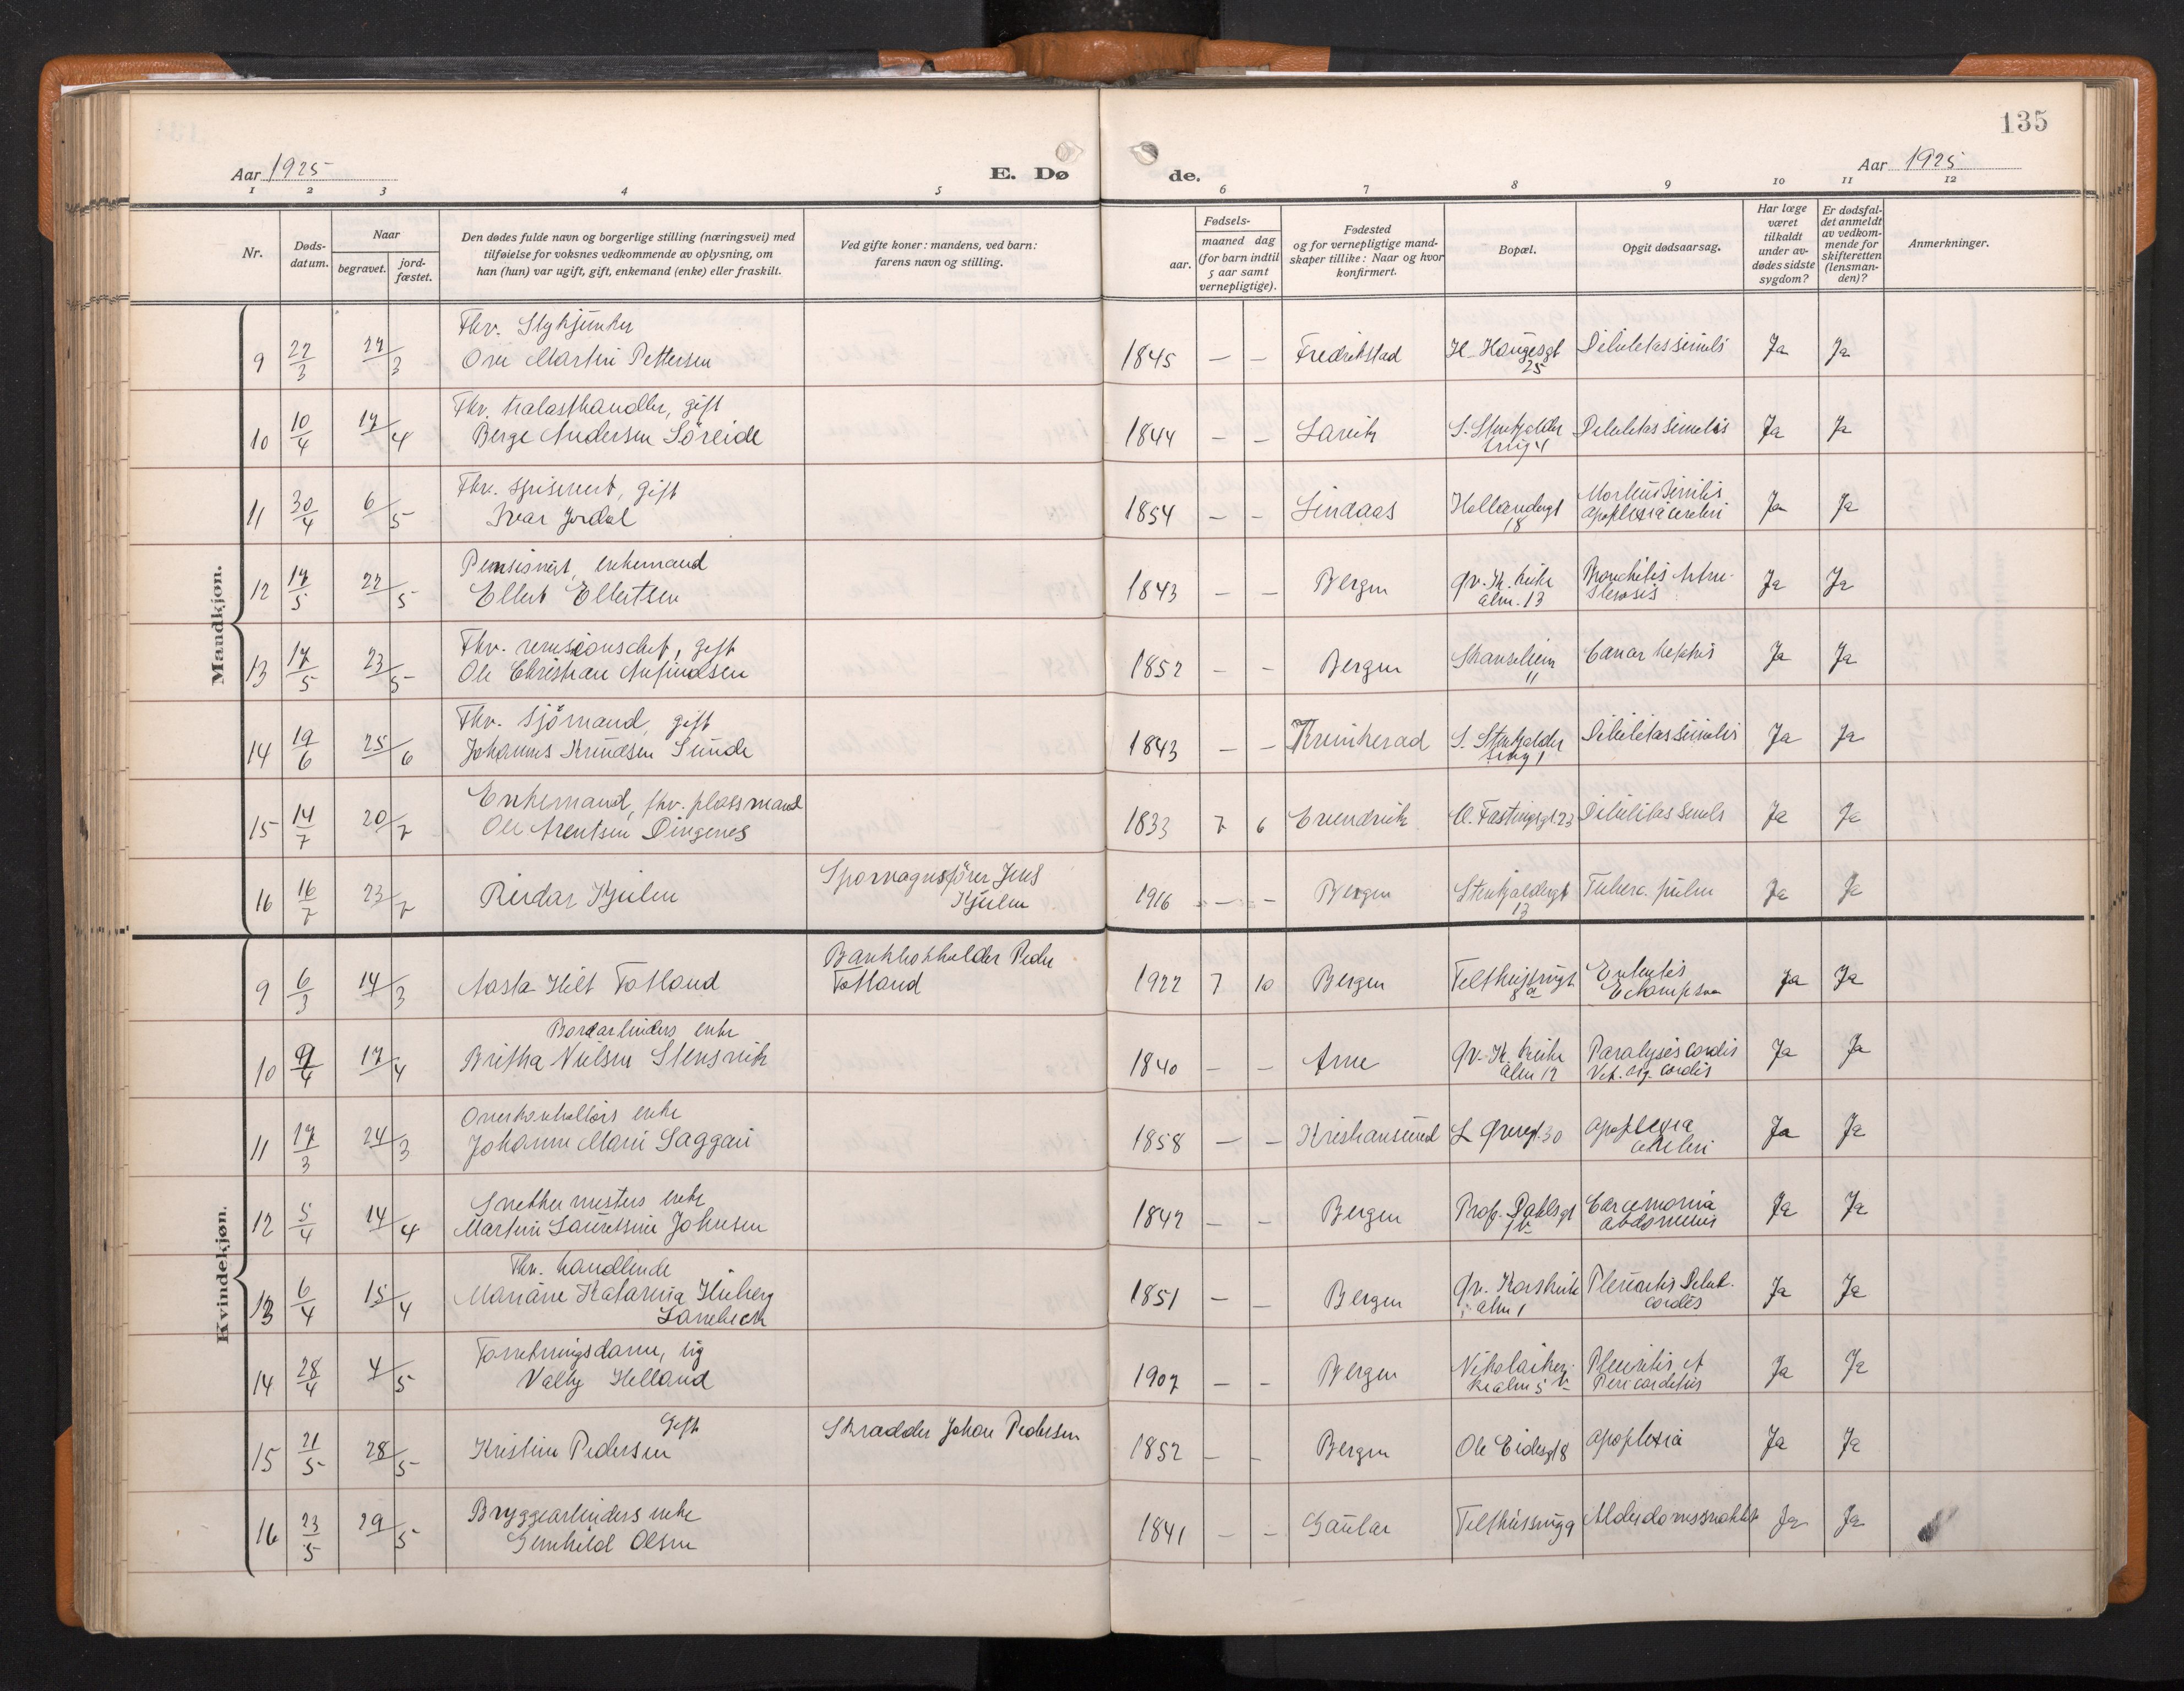 135
Aar 1925
E. Dø
de.
Aar 1925
1 2 3 4 5 6 7 8 9 10 11 12
Nr.
Døds-
datum.
Naar
begravet.
jord-
fæstet.
Den dødes fulde navn og borgerlige stilling (næringsvei) med
tilføielse for voksnes vedkommende av oplysning, om
han (hun) var ugift, gift, enkemand (enke) eller fraskilt.
Ved gifte koner: mandens, ved barn:
farens navn og stilling.
Fødsels-
aar.
maaned dag
(for barn indtil
5 aar samt
vernepligtige).
Fødested
og for vernepligtige mand-
skaper tillike: Naar og hvor
konfirmert.
Bopæl.
Opgit dødsaarsag.
Har læge
været
tilkaldt
under av-
dødes sidste
sygdom?
Er dødsfal-
det anmeldt
av vedkom-
mende for
skifteretten
(lensman-
den)?
Anmerkninger.
Mandkjøn.
Fhv.
9 22/3 27/3 Martin Pettersen 1845 – – Fredrikstad H. Haugesgt Debilitas senilis Ja Ja
25
Fhv. trælasthandler, gift
10 10/4 17/4 Berge Andersen Söreide 1844 – – Larvik S. Stenkjelder Debilitas senilis Ja Ja
4
Fhv. spisevert, gift
11 30/4 6/5 Ivar Jordal 1854 – – Lindaas Hollendergt senilis Ja Ja
18 apoplexia cerebri
Pensionist, enkemand
12 17/5 22/5 Ellert Ellertsen 1843 – – Bergen Øv. K. kirke Bronchitis Ja Ja
alm. 13
Fhv. revisionschef, gift
13 17/5 23/5 Ole Christian Anfindsen 1852 – – Bergen Skanselien Cancer hepatis Ja Ja
11
Fhv. sjömand, gift
14 19/6 25/6 Johannes Knudsen Sunde 1843 – – S. Stenkjelder Debilitas senilis Ja Ja
1
Enkemand, fhv. plassmand
15 14/7 20/7 Ole Arentsen Dingenes 1833 7 6 Evendvik C. Fastingsgt. 23 Debilitas senils Ja Ja
Sporvognsförer Jens
16 16/7 23/7 Reidar Kjulen Kjulen 1916 – – Bergen Stenkjeldergt Tuberc. pulm Ja Ja
13
Kvindekjøn.
Bankbokholder Peder
9 6/3 14/3 Aasta Hilt Totland Totland 1922 7 10 Bergen Telthusvugt Enteritis Ja Ja
8a Eclampsia
enke
10 9/4 17/4 Britha Nielsen Stensvik 1840 – – Arne Øv. K. kirke Paralysis cordis Ja Ja
alm 12 Vit. org. cordis
Overkonduktörs enke
11 17/3 24/3 Johanne Marie Saggau 1858 – – Kristiansund L Øvregt. 30 apoplexia Ja Ja
cerebri
Snekkermesters enke
12 5/4 14/4 Martine Lauretsine Johnsen 1847 – – Bergen Prof. Dahlsgt Carcinomia Ja Ja
abdominis
Fhv. handlende
13 6/4 15/4 Mariane Katarina Hiuberg 1851 – – Bergen Øv. Korskirke Pleuritis Debil. Ja Ja
alm 1 cordis
Forretningsdame, ug
14 28/4 4/5 Valby Helland 1907 – – Bergen Nikolaikir- Pleuritis et Ja Ja
kealm 5 Pericarditis
Gift Skrædder Johan Pedersen
15 21/5 28/5 Kristine Pedersen 1852 – – Bergen Ole Eidesgt 8 apoplexia Ja Ja
Bryggearbeiders enke
16 23/5 29/5 Gunhild Olsen 1841 – – Gaular Telthussvug 9 Alderdomssvakhet Ja Ja